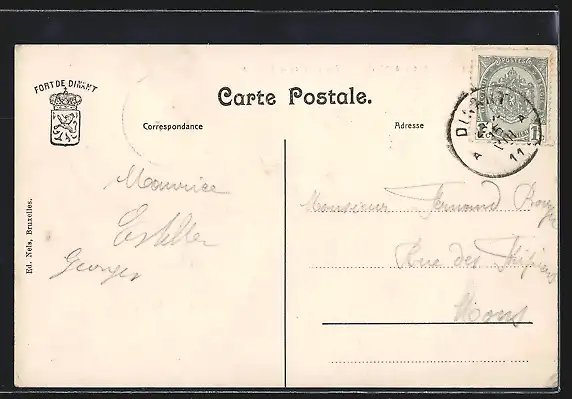 FORT DE DINANT
Carte Postale.
Correspondance
Adresse
Ed. Nels, Bruxelles.
POSTES
1
DINANT
A
11
Maurice
Estelle
Georges
Monsieur Fernand
Rue des
Mons